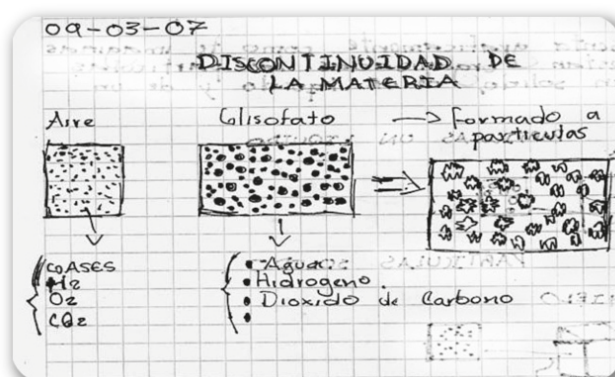 09-03-07
DISCONTINUIDAD DE
LA MATERIA
Aire
Glisofato
→ Formado a
particulas
GASES
H2
O2
CO2
• Agua
• Hidrogeno.
• Dioxido de Carbono
•